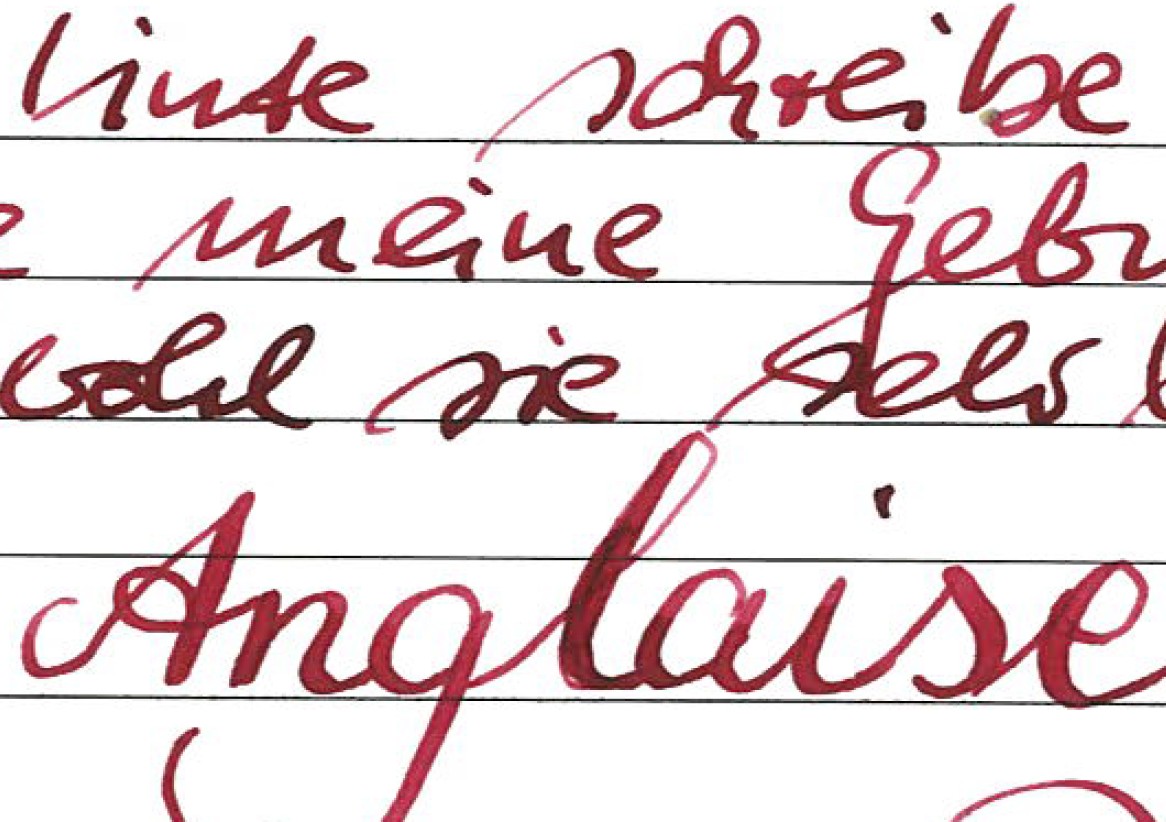 Tinte schreibe
e meine Gebu
wohl sie sehr
Anglaise